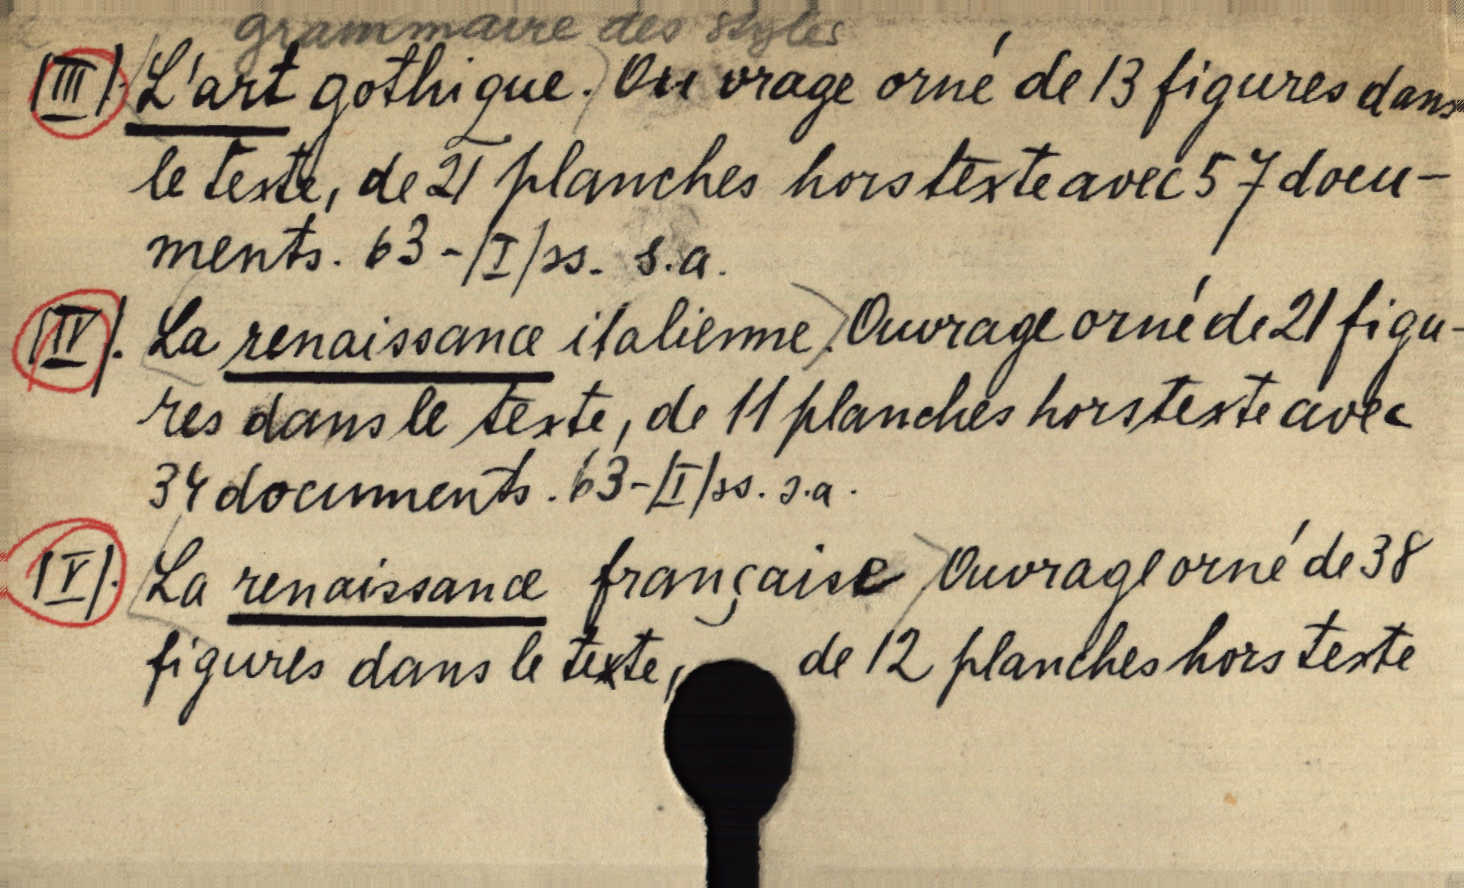 grammaire des styles
/III/. L'art gothique. Ouvrage orné de 13 figures dans
le texte, de 21 planches hors texte avec 57 docu-
ments. 63-/I/ss. s.a.
/IV/. La renaissance italienne. Ouvrage orné de 21 figu-
res dans le texte, de 11 planches hors texte avec
34 documents. 63-/I/ss. s.a.
/V/. La renaissance française Ouvrage orné de 38
figures dans le texte, de 12 planches hors texte